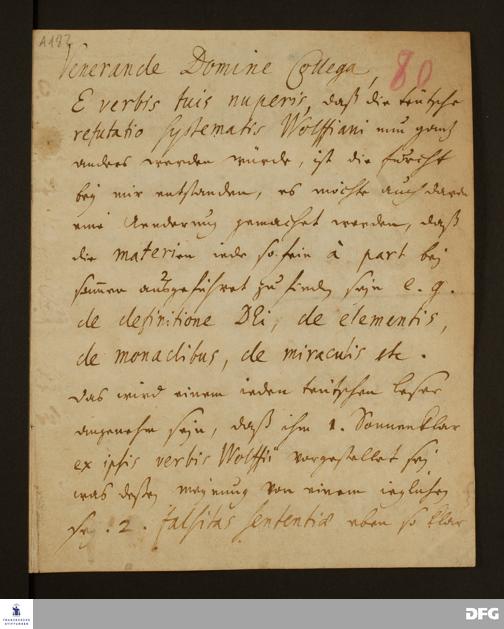 A188
80
Venerande Domine Collega,
E verbis tuis nuperis, daß die teütsche
refutatio Systematis Wolffiani nun gantz
anders werden würde, ist die furcht
bey mir entstanden, es möchte auch darin
eine Aenderung gemachet werden, daß
die materien iede so fein à part bey
sammen ausgeführet zu finden seyn e. g.
de definitione DEi, de elementis,
de monadibus, de miraculis etc.
Das wird einem ieden teütschen leser
angenehm seyn, daß ihm 1. Sonnenklar
ex ipsis verbis Wolffii vorgestellet sey,
was deßen meynung von einem ieglichen
sey. 2. falsitas sententiæ eben so klar
FRANCKESCHE STIFTUNGEN
DFG